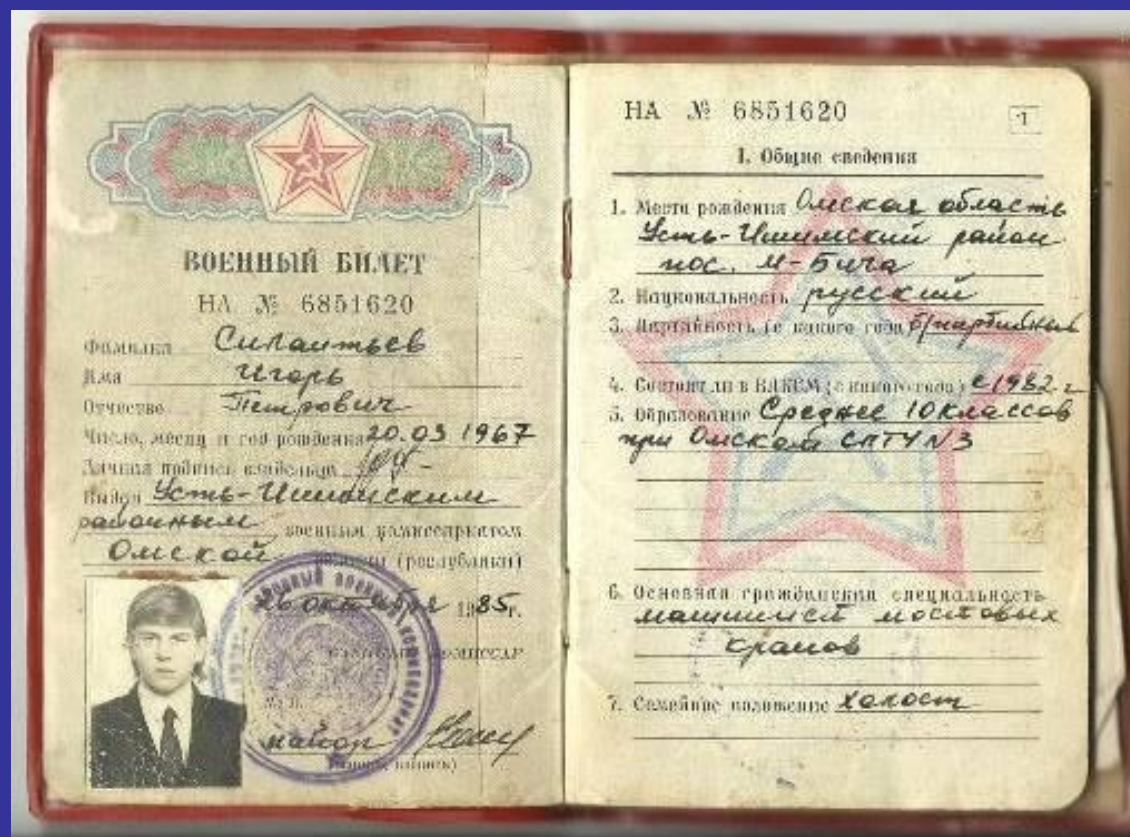 ВОЕННЫЙ БИЛЕТ
НА № 6851620
Фамилия Силантьев
Имя Игорь
Отчество Петрович
Число, месяц и год рождения 20.03 1967
Личная подпись владельца
Выдан Усть-Ишимским
районным военным комиссариатом
Омской области (республики)
26 октября 1985г.
военный комиссар
М. П.
майор
(звание, подпись)
НА № 6851620
1
I. Общие сведения
1. Место рождения Омская область
Усть-Ишимский район
пос. М-Бича
2. Национальность русский
3. Партийность (с какого года) б/партийный
4. Состоит ли в ВЛКСМ (с какого года) с 1982 г
5. Образование Среднее 10 классов
при Омском СПТУ N3
6. Основная гражданская специальность
машинист мостовых
кранов
7. Семейное положение холост